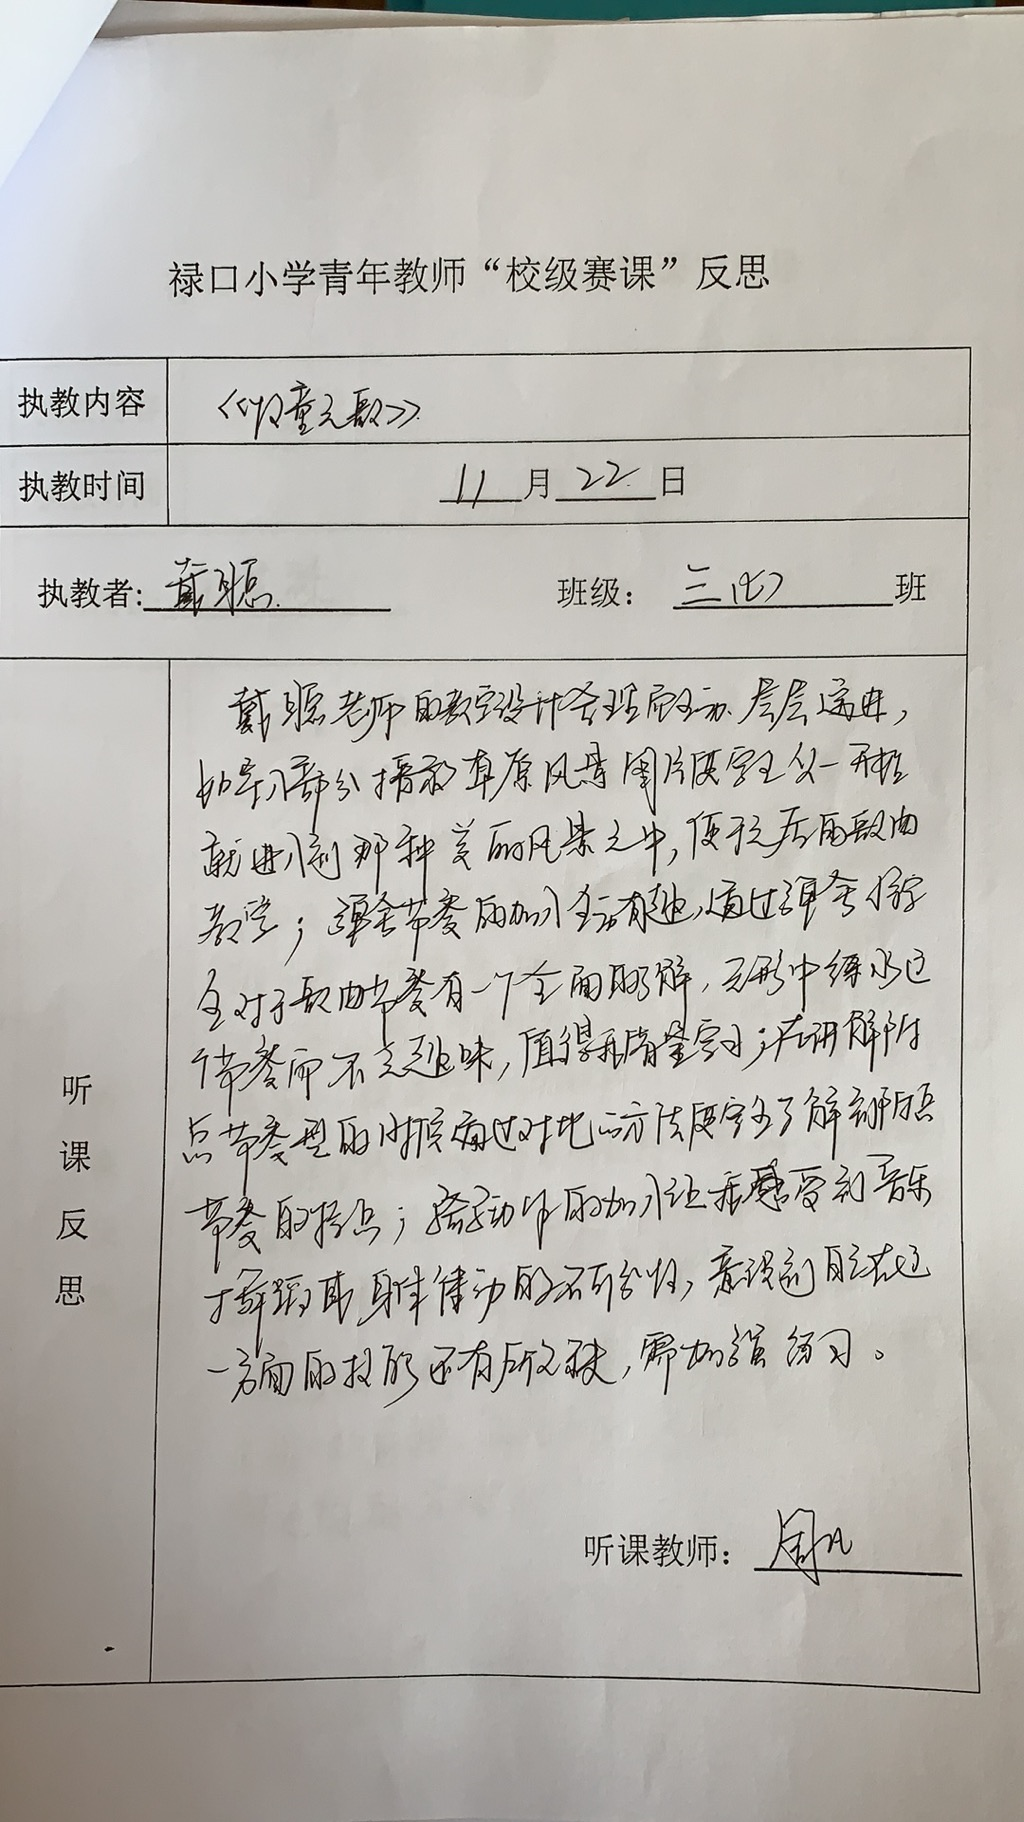 禄口小学青年教师“校级赛课”反思
执教内容 《牧童之歌》
执教时间 11月22日
执教者: 戴聪 班级: 三(七)班
听课反思
戴聪老师的教学设计合理而生动、层层递进,
如导入部分播放草原风景图片使学生从一开始
就进入到那种美丽风景之中,便于之后的歌曲
教学;弹舌节奏的加入生动有趣,通过弹舌
生对于歌曲节奏有一个全面的了解,无形中练习这
个节奏而不乏趣味,值得我借鉴学习;在讲解附
点节奏型的时候通过对比的方法使学生了解到附点
节奏的特点;骑马动作的加入让我感受到音乐
舞蹈或身体律动的不可分性,意识到自己在这
一方面的技能还有所欠缺,需加强练习。
听课教师: 周凡